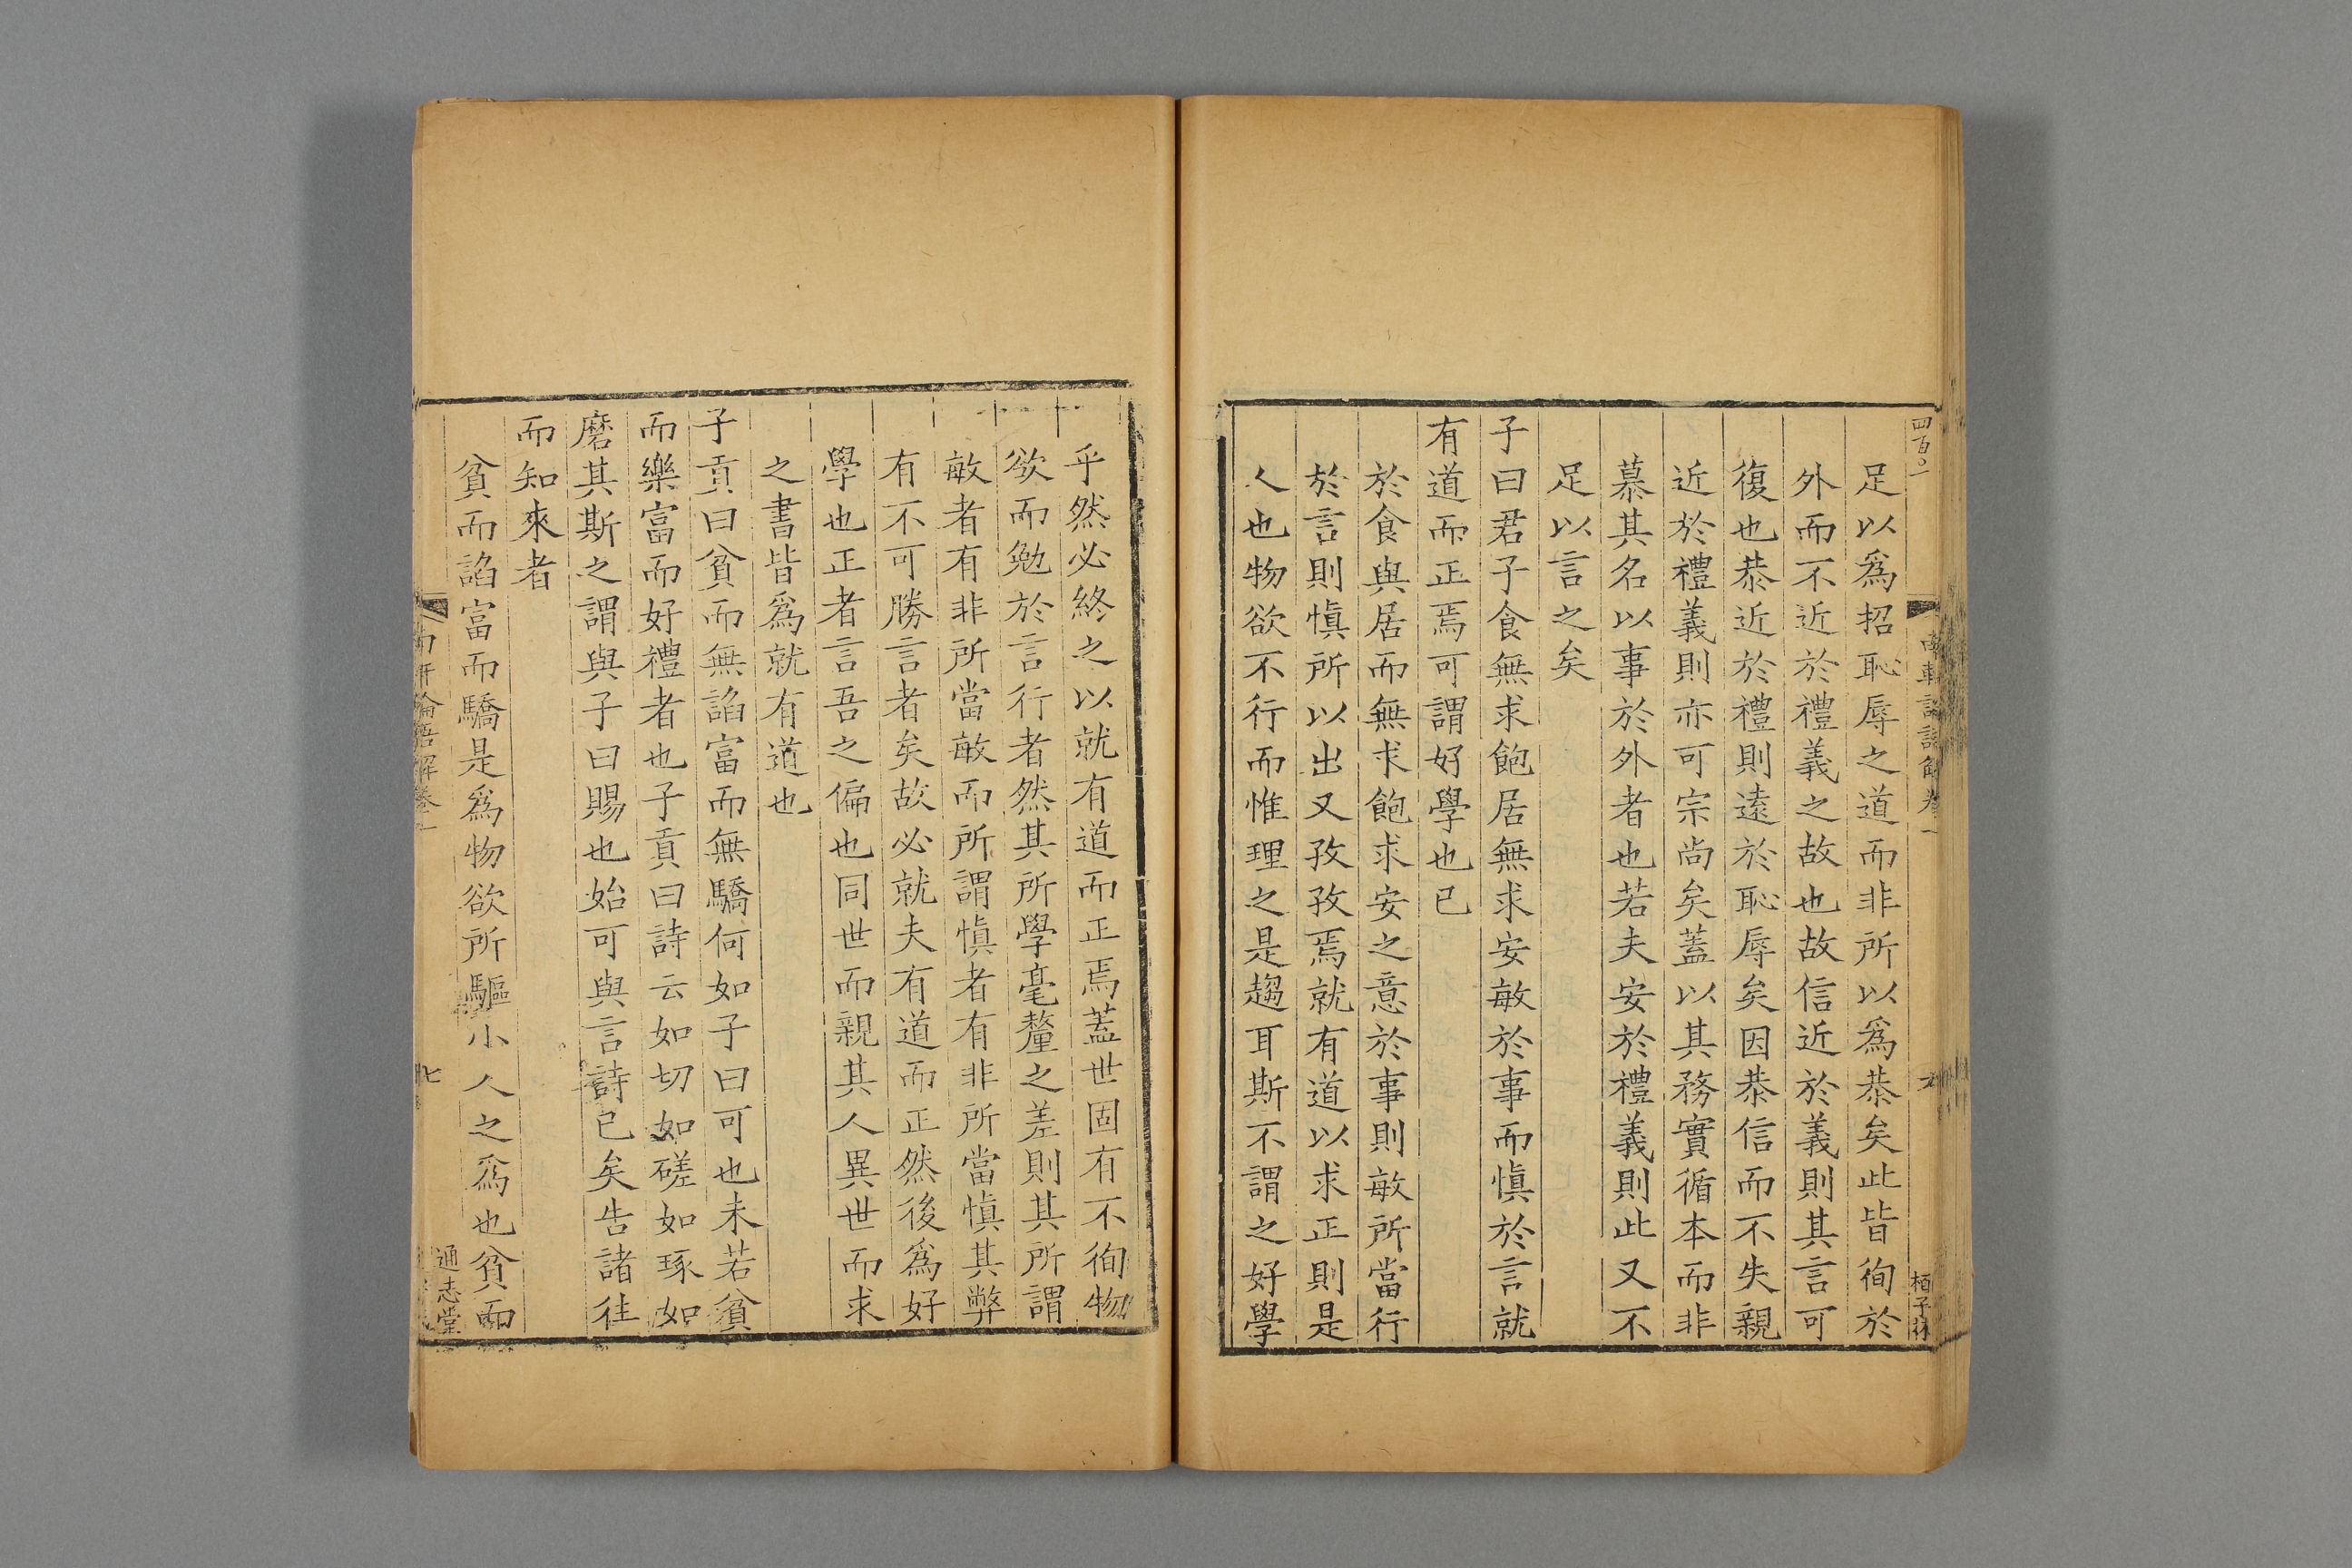 四百〇一
南軒論語解卷一
六
栢子林
足以爲招恥辱之道而非所以爲恭矣此皆徇於
外而不近於禮義之故也故信近於義則其言可
復也恭近於禮則遠於恥辱矣因恭信而不失親
近於禮義則亦可宗尚矣蓋以其務實循本而非
慕其名以事於外者也若夫安於禮義則此又不
足以言之矣
子曰君子食無求飽居無求安敏於事而慎於言就
有道而正焉可謂好學也已
於食與居而無求飽求安之意於事則敏所當行
於言則慎所以出又孜孜焉就有道以求正則是
人也物欲不行而惟理之是趨耳斯不謂之好學
乎然必終之以就有道而正焉蓋世固有不徇物
欲而勉於言行者然其所學毫釐之差則其所謂
敏者有非所當敏而所謂慎者有非所當慎其弊
有不可勝言者矣故必就夫有道而正然後爲好
學也正者言吾之偏也同世而親其人異世而求
之書皆爲就有道也
子貢曰貧而無諂富而無驕何如子曰可也未若貧
而樂富而好禮者也子貢曰詩云如切如磋如琢如
磨其斯之謂與子曰賜也始可與言詩已矣告諸往
而知來者
貧而諂富而驕是爲物欲所驅小人之爲也貧而
南軒論語解卷一
七
通志堂